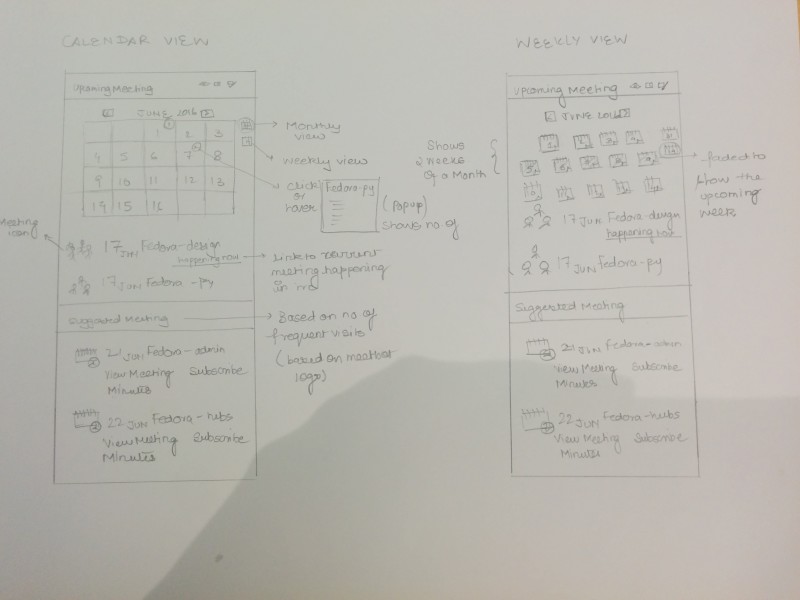 CALENDAR VIEW
Upcoming Meeting
JUNE 2016
1 2 3
4 5 6 7 8
9 10 11 12 13
14 15 16
Monthly
view
weekly view
click
or
hover
Fedora-py
(Popup)
shows no of
Meeting
icon
17 JUN Fedora-design
happening now
17 JUN Fedora-py
Link to current
meeting happening
in
Suggested Meeting
Based on no of
frequent visits
(based on meetbot
logs)
21 JUN Fedora-admin
View Meeting Subscribe
Minutes
22 JUN Fedora-hubs
View Meeting Subscribe
Minutes
WEEKLY VIEW
Upcoming Meeting
JUNE 2016
Shows
2 weeks
of a Month
faded to
show the
upcoming
week
17 JUN Fedora-design
happening now
17 JUN Fedora-py
Suggested Meeting
21 JUN Fedora-admin
View Meeting Subscribe
Minutes
22 JUN Fedora-hubs
View Meeting Subscribe
Minutes